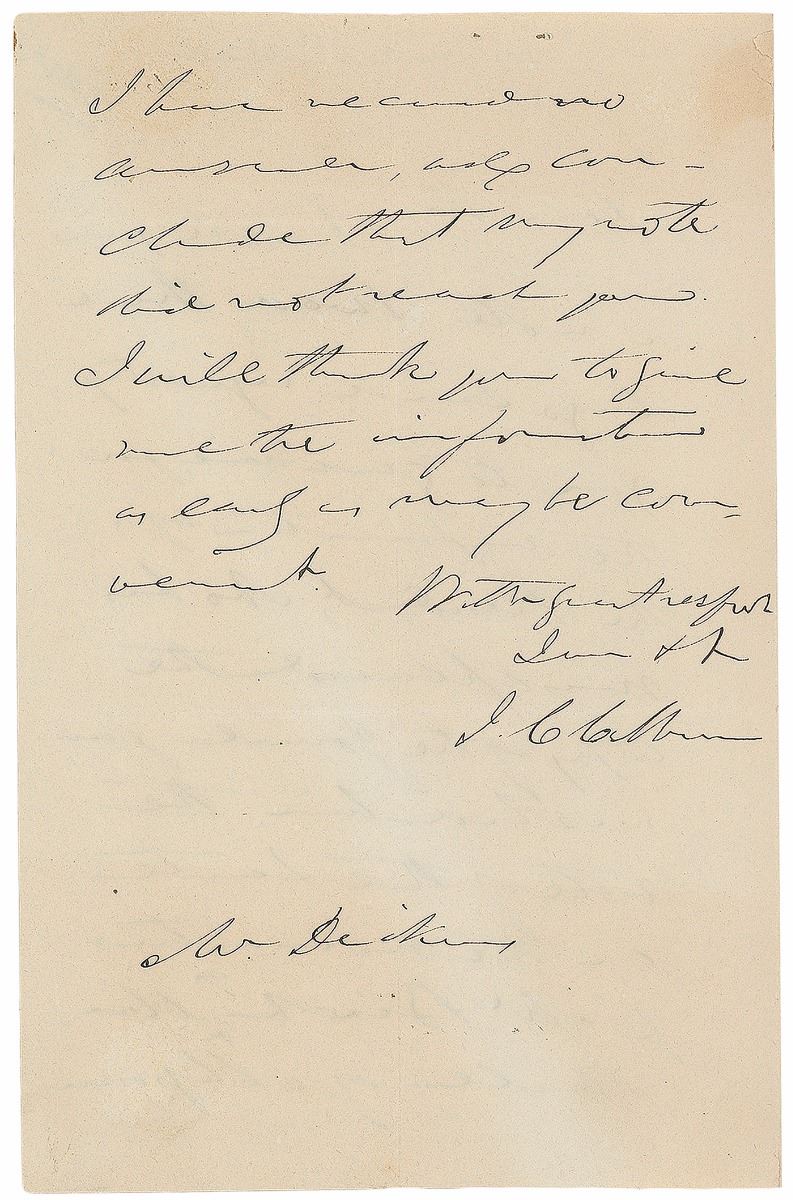 I have received no
answer, and con-
clude that my note
did not reach you.
I will thank you to give
me the information
as early as may be con-
venient.
With great respect
I am & &
J. C. Calhoun
Mr. Dickins